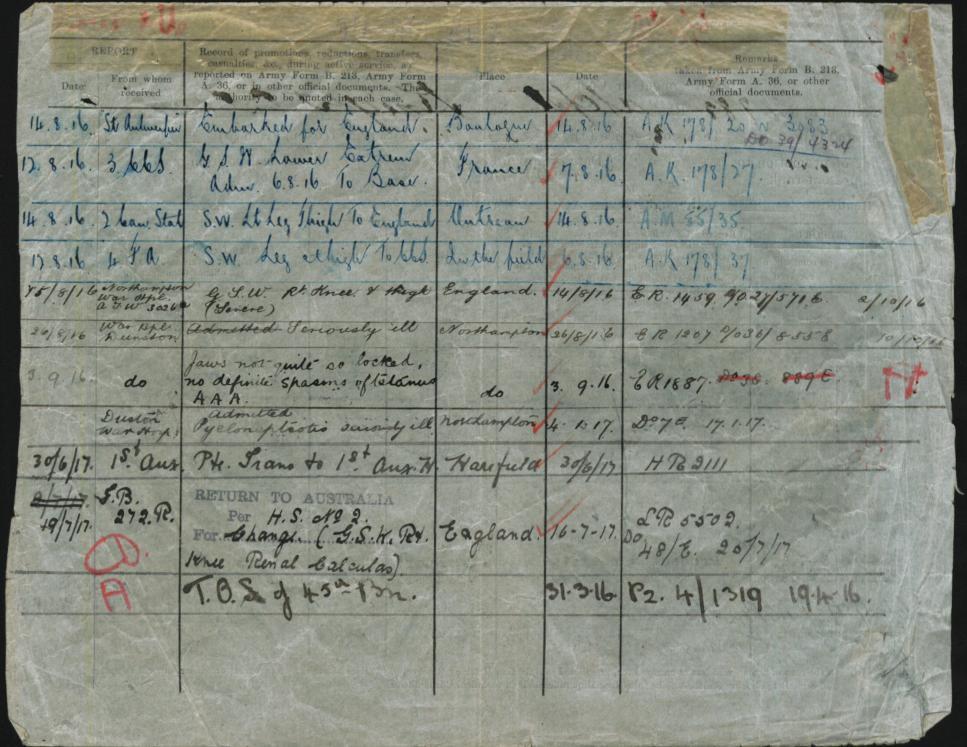 REPORT
Record of promotions, reductions, transfers,
casualties, &c., during active service, as
reported on Army Form B. 213, Army Form
A. 36, or in other official documents. The
authority to be quoted in each case.
Remarks
taken from Army Form B. 213,
Army Form A. 36, or other
official documents.
Date
From whom
received
Place
Date
14.8.16 St Embarked for England. Boulogne 14.8.16 A.K 178/20 3083
DO 39/4324
12.8.16 3 CCS G S W Lower Extrem France 7.8.16 A.K. 178/27
Adm 6.8.16 To Base.
14.8.16 2 Can Stat S.W. Lt Leg Thigh To England Outreau 14.8.16 A.M 55/35
12.8.16 4 FA S.W. Leg & thigh To CCS In the field 6.8.16 A.K 178/37
15/8/16 Northampton War Hpl. A.F.W 3026a G.S.W. Rt Knee & thigh England. 14/8/16 E.R. 1459 2/10/16
(Severe)
26/8/16 War Hpl. Dunston Admitted Seriously ill Northampton 26/8/16 E R 1207 10/10/16
3.9.16. do Jaws not quite so locked,
no definite spasms of tetanus
A A A. do 3.9.16. E R 1887.
Duston War Hosp. admitted
seriously ill. Northampton 4.1.17. Do 7 17.1.17.
30/6/17. 1st Aux. Pte. Trans to 1st Aux. H. Harefield 30/6/17 H R 2111
19/7/17. G.B.
272.R. RETURN TO AUSTRALIA
Per H.S. No 2.
For Change (G.S.W. Rt. England. 16-7-17. LR 5502.
Knee Renal Calculas) Do 48/E. 20/7/17
A T.O.S. of 45th Bn. 31.3.16. P2. 4/1319 19.4.16.